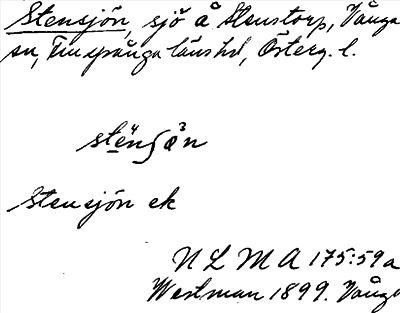 Stensjön, sjö å Stenstorp, Vånga
sn, Finspånga länshd, Österg. l.
Stensjön ek
N L M A 175:59a
Westman 1899. Vånga